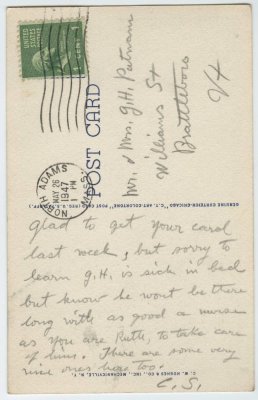 UNITED STATES POSTAGE
1 CENT 1
NORTH ADAMS
MAY 26
1 PM
1947
MASS.
POST CARD
Mr. & Mrs. G. H. Putnam
Williams St
Brattleboro
Vt
GENUINE CURTEICH-CHICAGO "C. T. ART-COLORTONE" POST CARD (REG. U.S. PAT. OFF.)
C. W. HUGHES & CO., INC., MECHANICVILLE, N. Y.
Glad to get your card
last week, but sorry to
learn G. H. is sick in bed
but know he wont be there
long with as good a nurse
as you are Ruth, to take care
of him. There are some very
nice ones here too.
C. S.